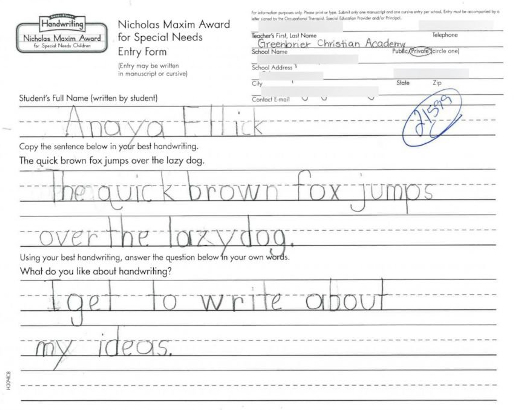 Handwriting
Nicholas Maxim Award
for Special Needs Children
Nicholas Maxim Award
for Special Needs
Entry Form
(Entry may be written
in manuscript or cursive)
For information purposes only. Please print or type. Submit only one manuscript and one cursive entry per school. Entry must be accompanied by a
letter from the Occupational Therapist, Special Education Provider and/or Principal.
Teacher's First, Last Name Telephone
Greenbrier Christian Academy
School Name Public/Private (circle one)
School Address
City State Zip
Contact E-mail
21599
Student's Full Name (written by student)
Anaya Ellick
Copy the sentence below in your best handwriting.
The quick brown fox jumps over the lazy dog.
The quick brown fox jumps
over the lazy dog.
Using your best handwriting, answer the question below in your own words.
What do you like about handwriting?
I get to write about
my ideas.